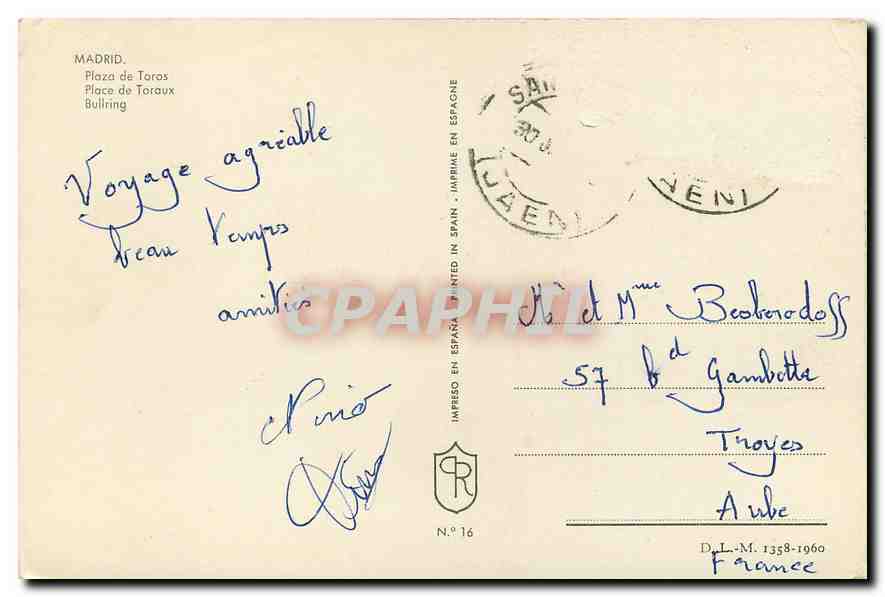 MADRID.
Plaza de Toros
Place de Toraux
Bullring
Voyage agréable
beau temps
amitiés
IMPRESO EN ESPAÑA - PRINTED IN SPAIN - IMPRIME EN ESPAGNE
CPAPHIL
PR
N.º 16
SAN
30 J
(JAEN)
(JAEN)
Mr et Mme Besborodoff
57 bd Gambetta
Troyes
Aube
D. L.-M. 1358-1960
France